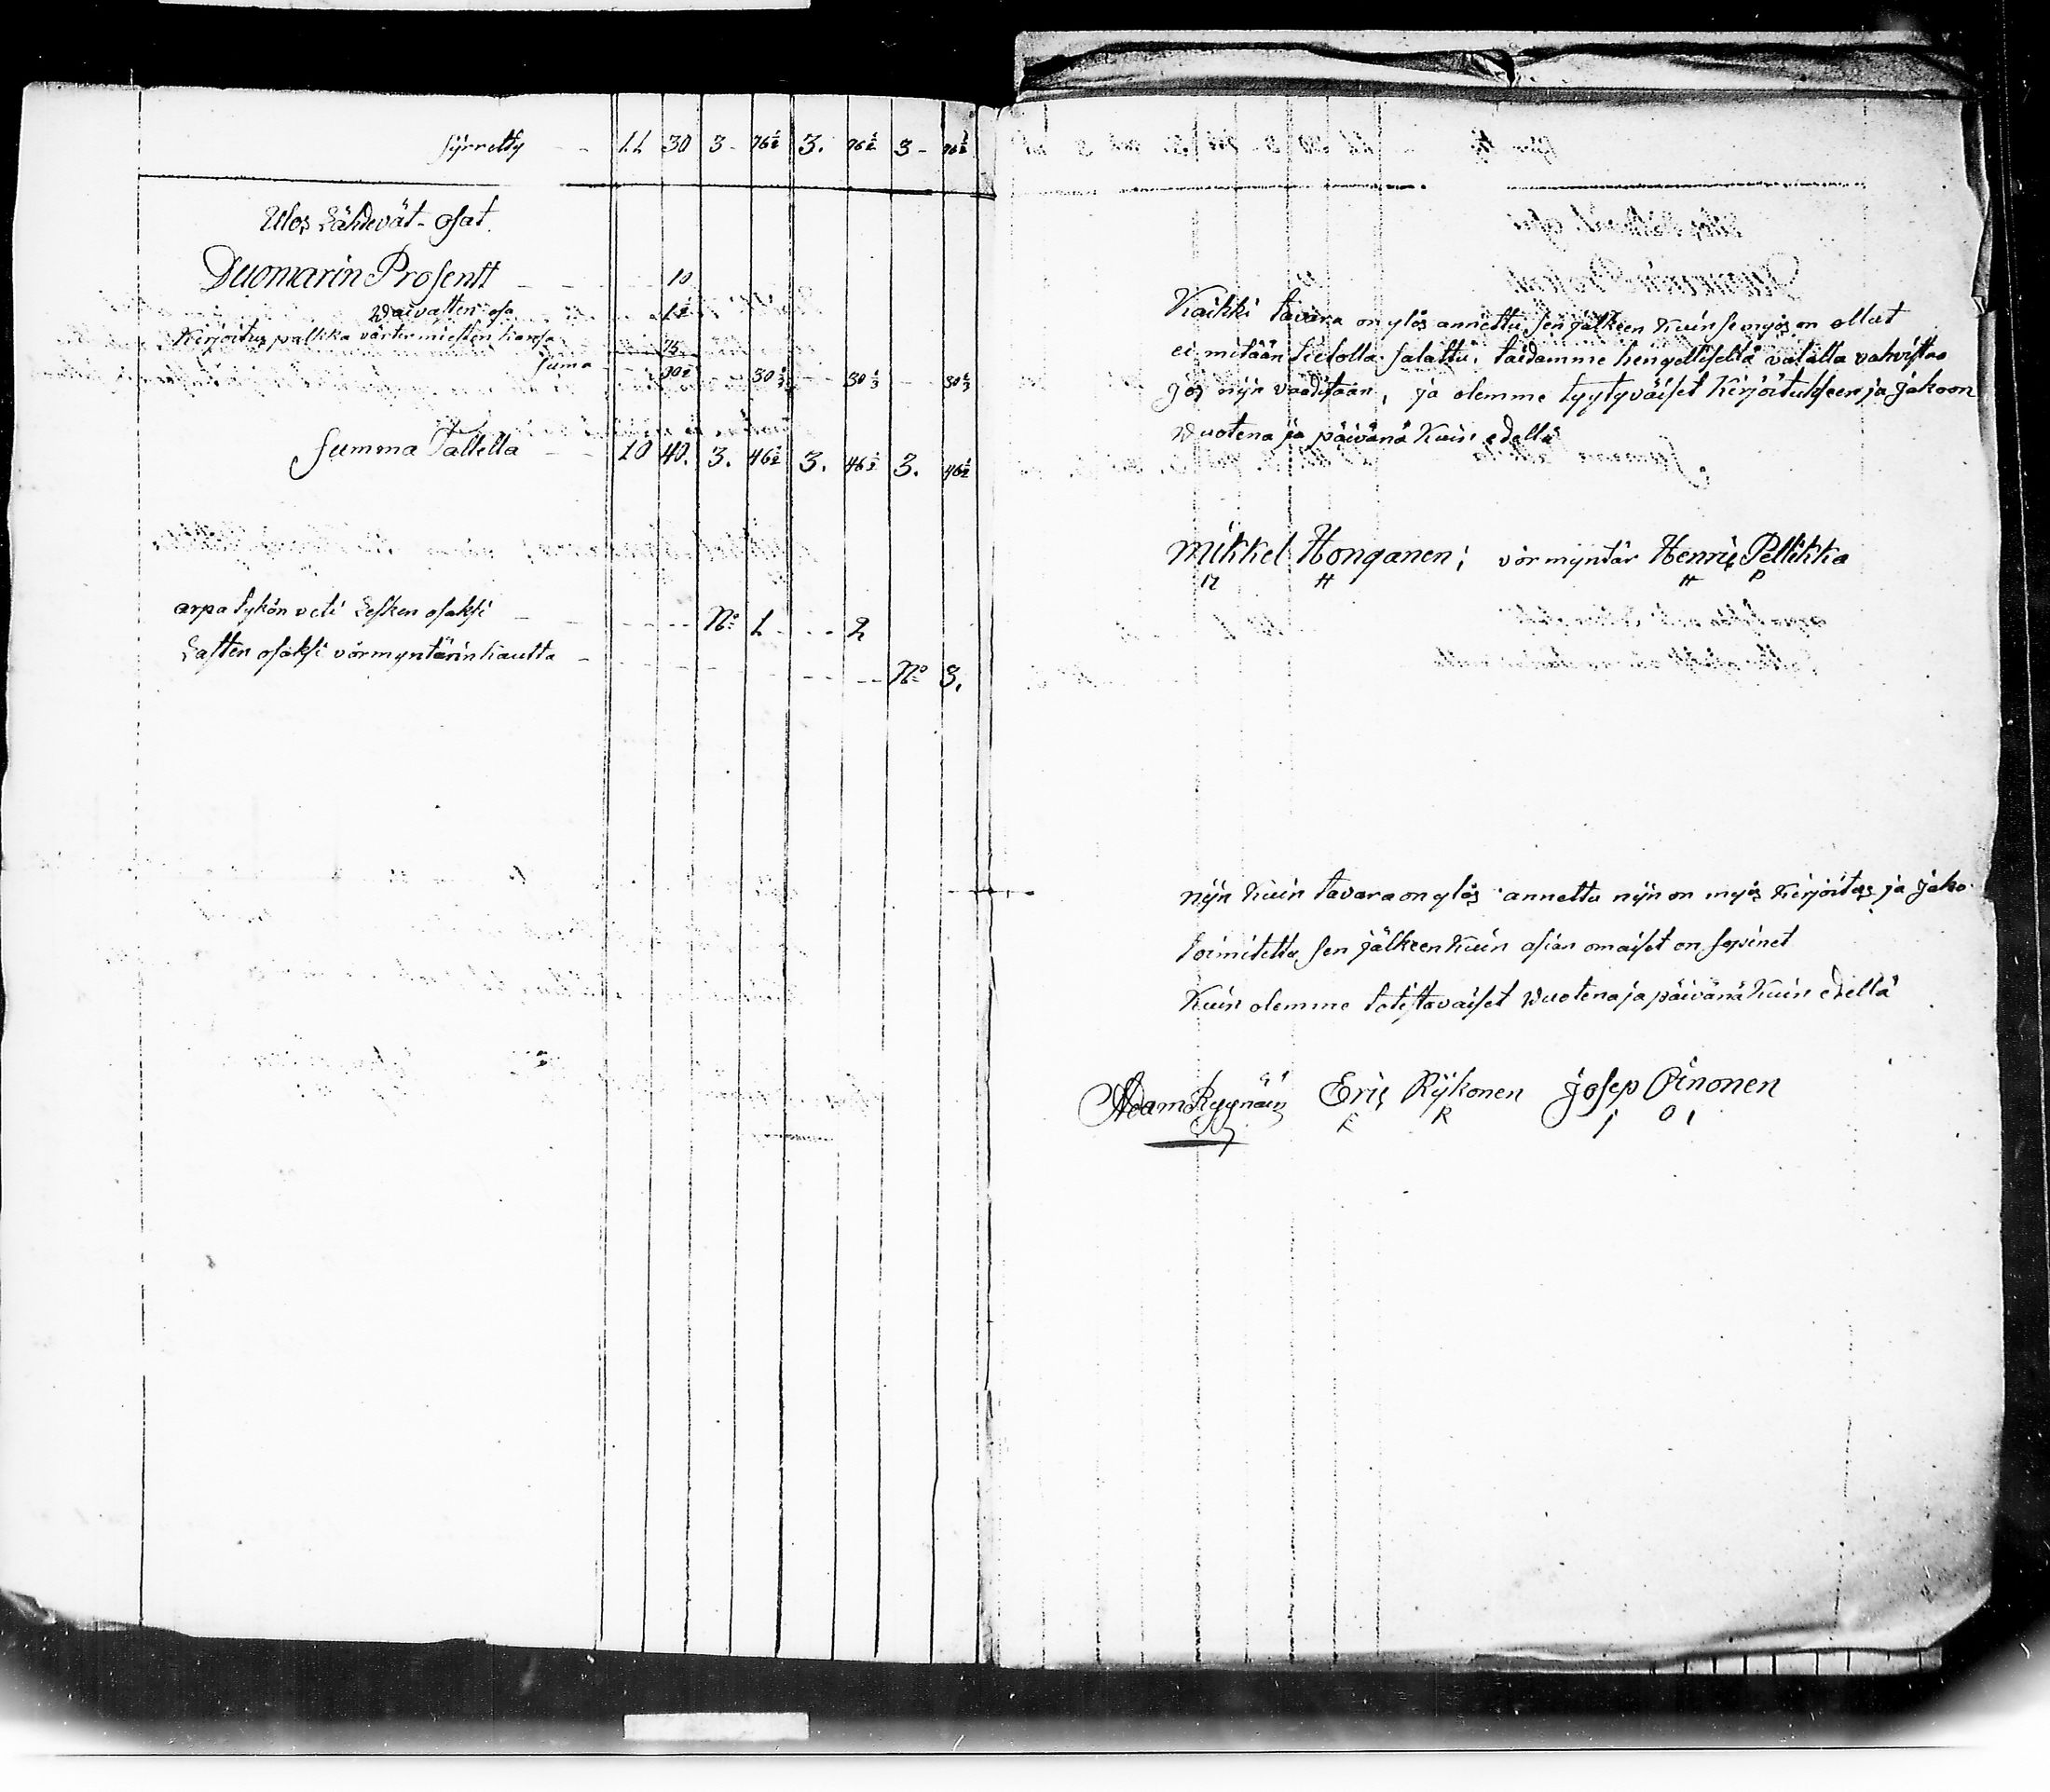 syrretty - - 11 30 3 - 76½ 3. 76½ 3 - 76½
Ulos Lähdevät - osat.
Duomarin Prosentt - - - - 10
Waivasten osa - - - - 1½
Kirjoitus palkka värtinmiesten kansa - - 75
suma - - - 30⅓ - - 30⅓ - - 30⅓
Summa Tallella - - 10 40. 3. 46½ 3. 46½ 3. 46½
arpa lykön veti Lesken osaksi - - - - No 1 - - - 2
Lasten osaksi vörmyntärin kautta - - - - - - No 3.
Kaikki tavara on ylös annettu, sen jälkeen kuin se myös on ollut
ei mitään tiedolla salattu, taidamme hengellisellä valalla vahvistaa
jos nijn vaaditaan, ja olemme tyytyväiset Kirjoitukseen ja jakoon
Wuotena ja päivänä Kuin edellä
Mikkel Honganen; vörmyntär Henric Pellikka
M H H P
nijn kuin tavara on ylös annettu nijn on myös kirjoitus ja jako
toimitettu, sen jälkeen kuin asian omaiset on sopinet
Kuin olemme totistavaiset Wuotena ja päivänä kuin edellä
Adam Ryynäin Eric Rÿkonen Josep Oinonen
E R J O I